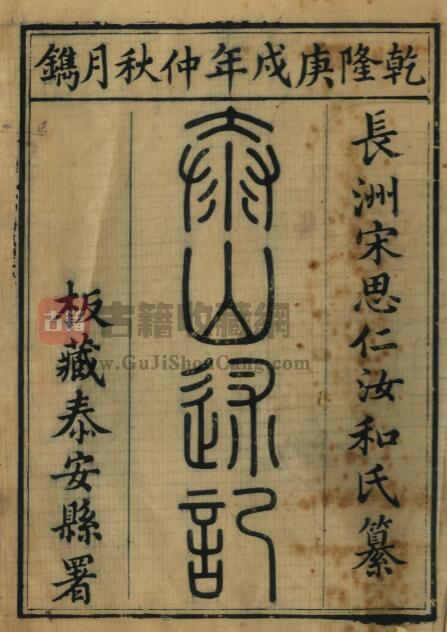 乾隆庚戌年仲秋月鐫
長洲宋思仁汝和氏纂
泰山述記
板藏泰安縣署
古籍 古籍收藏網
www.GuJiShouCang.com